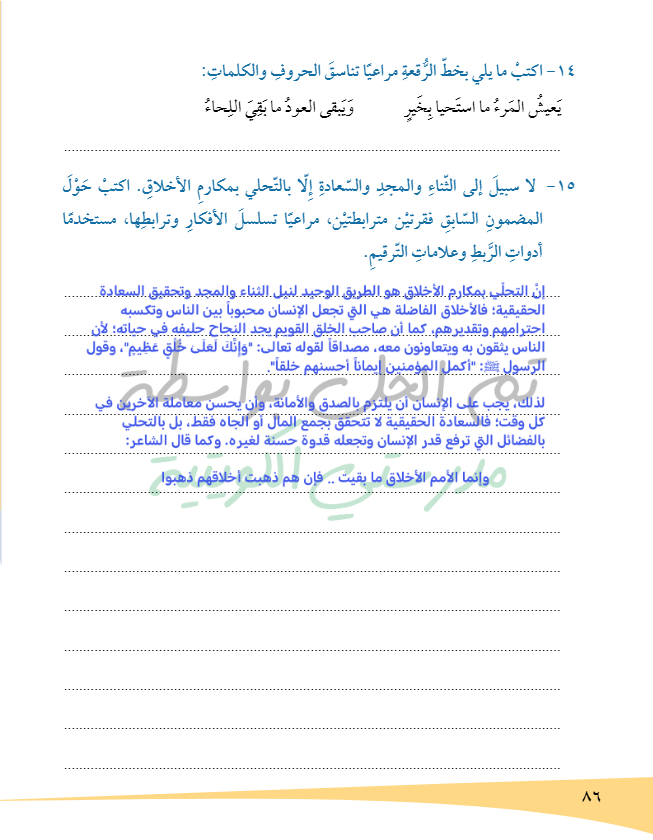 ١٤- اكتبْ ما يلي بخطّ الرُّقعةِ مراعيًا تناسقَ الحروفِ والكلماتِ:
يَعيشُ المَرءُ ما استَحيا بِخَيرٍ وَيَبقى العودُ ما بَقِيَ اللِحاءُ
١٥- لا سبيلَ إلى الثّناءِ والمجدِ والسّعادةِ إلّا بالتّحلي بمكارمِ الأخلاقِ. اكتبْ حَوْلَ
المضمونِ السّابقِ فقرتيْن مترابطتيْن، مراعيًا تسلسلَ الأفكارِ وترابطِها، مستخدمًا
أدواتِ الرَّبطِ وعلاماتِ التّرقيمِ.
إنَّ التحلّي بمكارم الأخلاق هو الطريق الوحيد لنيل الثناء والمجد وتحقيق السعادة
الحقيقية؛ فالأخلاق الفاضلة هي التي تجعل الإنسان محبوباً بين الناس وتكسبه
احترامهم وتقديرهم. كما أن صاحب الخلق القويم يجد النجاح حليفه في حياته؛ لأن
الناس يثقون به ويتعاونون معه، مصداقاً لقوله تعالى: "وَإِنَّكَ لَعَلَى خُلُقٍ عَظِيمٍ"، وقول
الرسول ﷺ: "أكمل المؤمنين إيماناً أحسنهم خلقاً".
تم الحل بواسطة
لذلك، يجب على الإنسان أن يلتزم بالصدق والأمانة، وأن يحسن معاملة الآخرين في
كل وقت؛ فالسعادة الحقيقية لا تتحقق بجمع المال أو الجاه فقط، بل بالتحلي
بالفضائل التي ترفع قدر الإنسان وتجعله قدوة حسنة لغيره. وكما قال الشاعر:
مدرستي الكويتية
وإنما الأمم الأخلاق ما بقيت .. فإن هم ذهبت أخلاقهم ذهبوا
٨٦